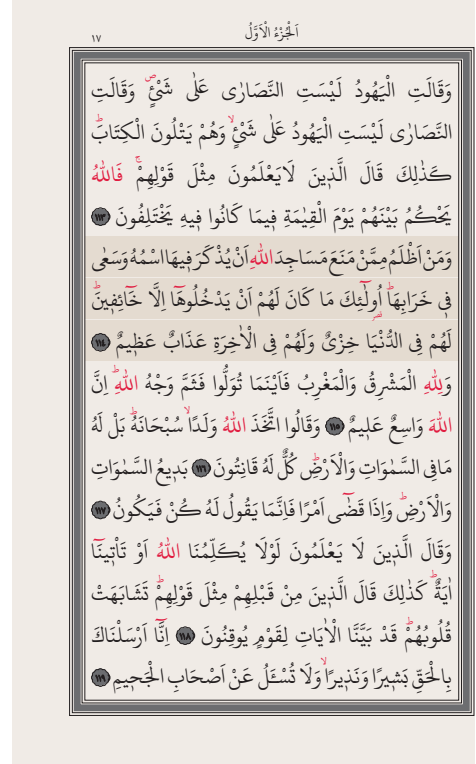 اَلْجُزْءُ الْاَوَّلُ
١٧
وَقَالَتِ الْيَهُودُ لَيْسَتِ النَّصَارٰى عَلٰى شَيْءٍۖ وَقَالَتِ
النَّصَارٰى لَيْسَتِ الْيَهُودُ عَلٰى شَيْءٍۙ وَهُمْ يَتْلُونَ الْكِتَابَۜ
كَذٰلِكَ قَالَ الَّذ۪ينَ لَايَعْلَمُونَ مِثْلَ قَوْلِهِمْۚ فَاللّٰهُ
يَحْكُمُ بَيْنَهُمْ يَوْمَ الْقِيٰمَةِ ف۪يمَا كَانُوا ف۪يهِ يَخْتَلِفُونَ ﴿١١٣﴾
وَمَنْ اَظْلَمُ مِمَّنْ مَنَعَ مَسَاجِدَ اللّٰهِ اَنْ يُذْكَرَ ف۪يهَا اسْمُهُ وَسَعٰى
ف۪ي خَرَابِهَاۜ اُو۬لٰٓئِكَ مَا كَانَ لَهُمْ اَنْ يَدْخُلُوهَٓا اِلَّا خَٓائِف۪ينَۜ
لَهُمْ فِي الدُّنْيَا خِزْيٌ وَلَهُمْ فِي الْاٰخِرَةِ عَذَابٌ عَظ۪يمٌ ﴿١١٤﴾
وَلِلّٰهِ الْمَشْرِقُ وَالْمَغْرِبُ فَاَيْنَمَا تُوَلُّوا فَثَمَّ وَجْهُ اللّٰهِۜ اِنَّ
اللّٰهَ وَاسِعٌ عَل۪يمٌ ﴿١١٥﴾ وَقَالُوا اتَّخَذَ اللّٰهُ وَلَدًاۙ سُبْحَانَهُۜ بَلْ لَهُ
مَافِي السَّمٰوَاتِ وَالْاَرْضِۜ كُلٌّ لَهُ قَانِتُونَ ﴿١١٦﴾ بَد۪يعُ السَّمٰوَاتِ
وَالْاَرْضِۜ وَاِذَا قَضٰٓى اَمْرًا فَاِنَّمَا يَقُولُ لَهُ كُنْ فَيَكُونُ ﴿١١٧﴾
وَقَالَ الَّذ۪ينَ لَا يَعْلَمُونَ لَوْلَا يُكَلِّمُنَا اللّٰهُ اَوْ تَأْت۪ينَٓا
اٰيَةٌۜ كَذٰلِكَ قَالَ الَّذ۪ينَ مِنْ قَبْلِهِمْ مِثْلَ قَوْلِهِمْۜ تَشَابَهَتْ
قُلُوبُهُمْۜ قَدْ بَيَّنَّا الْاٰيَاتِ لِقَوْمٍ يُوقِنُونَ ﴿١١٨﴾ اِنَّٓا اَرْسَلْنَاكَ
بِالْحَقِّ بَش۪يرًا وَنَذ۪يرًاۙ وَلَا تُسْـَٔلُ عَنْ اَصْحَابِ الْجَح۪يمِ ﴿١١٩﴾